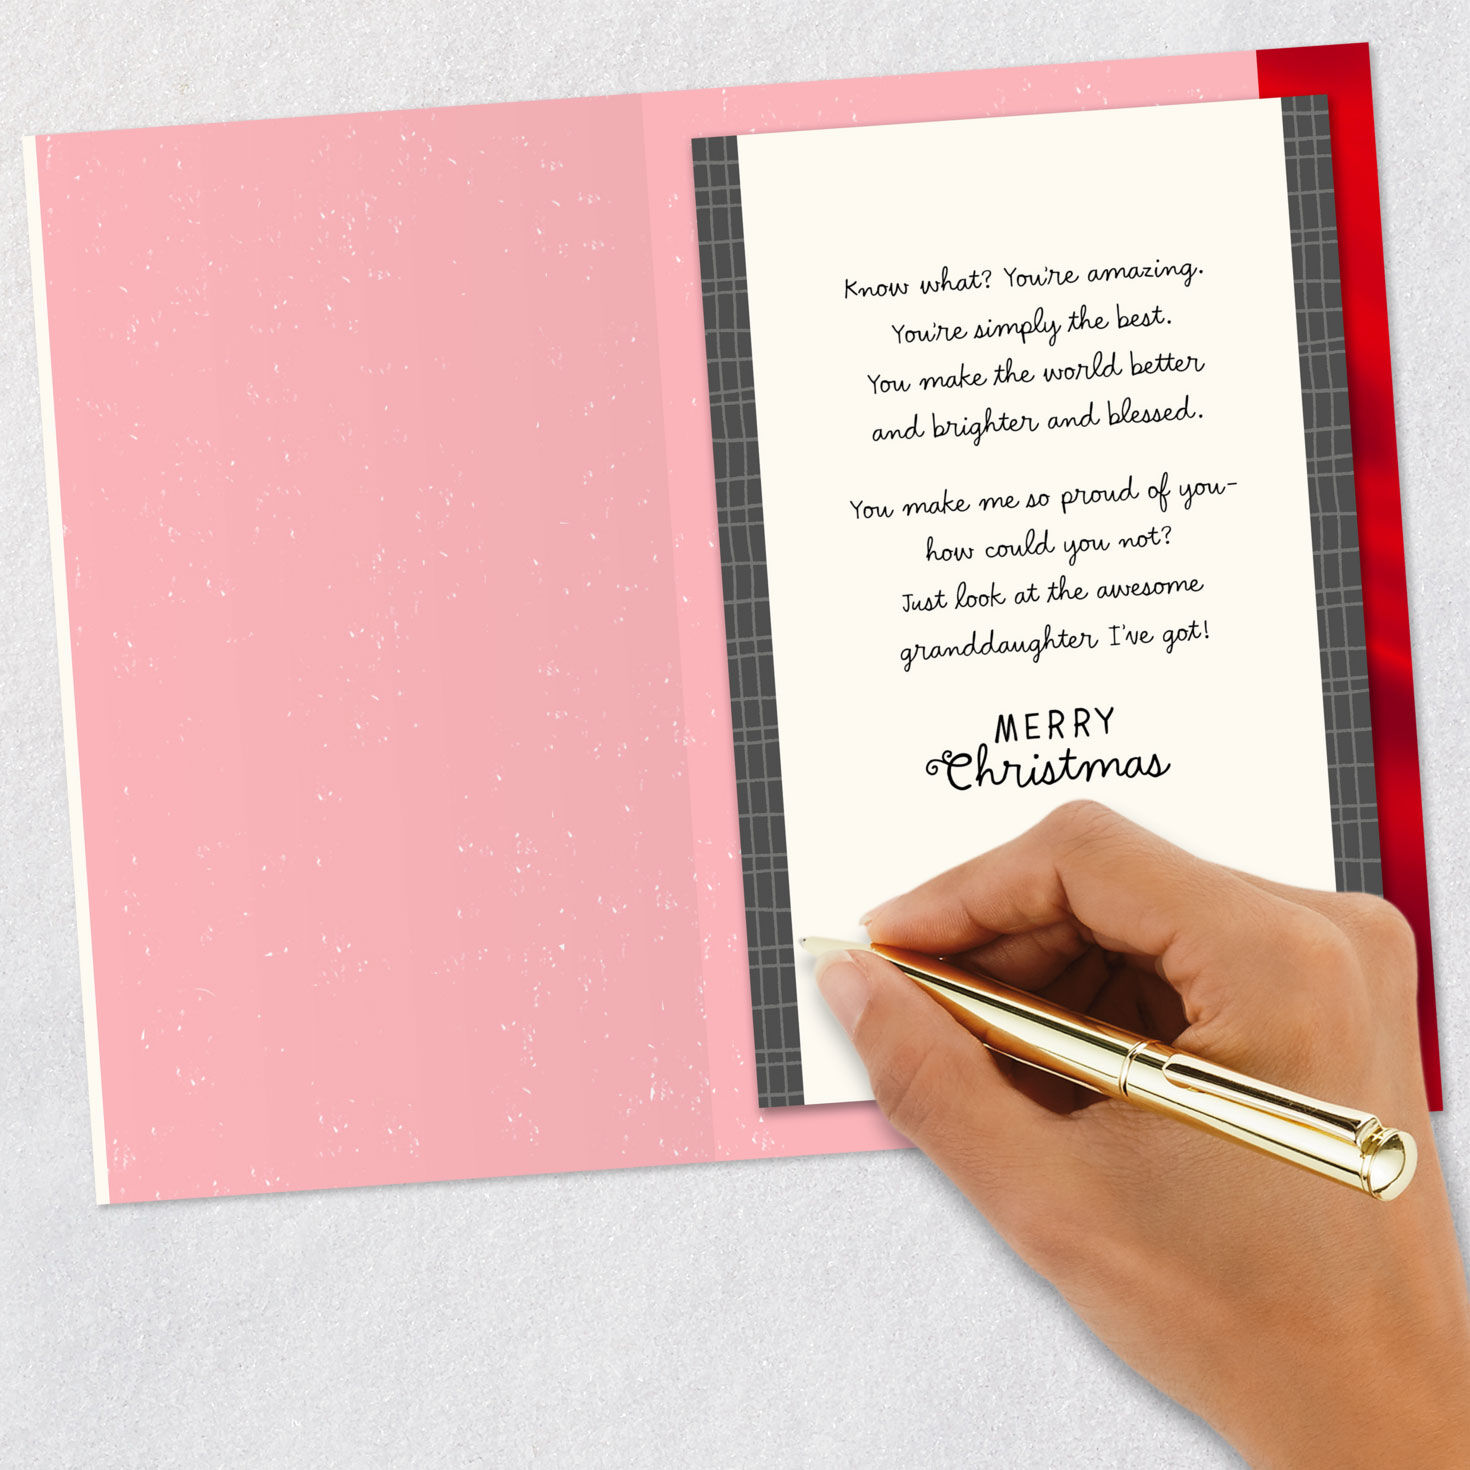 Know what? You're amazing.
You're simply the best.
You make the world better
and brighter and blessed.
You make me so proud of you–
how could you not?
Just look at the awesome
granddaughter I've got!
MERRY
Christmas